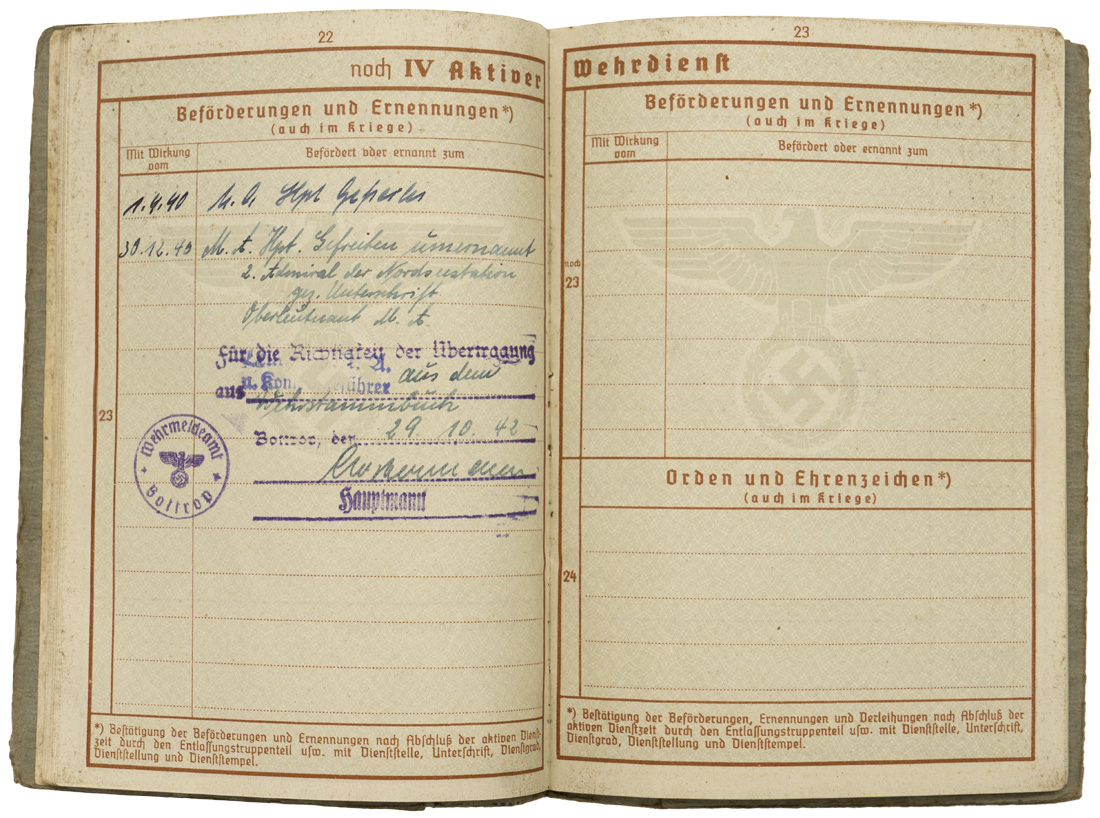 22
noch IV Aktiver
Beförderungen und Ernennungen*)
(auch im Kriege)
Mit Wirkung
vom
Befördert oder ernannt zum
1.4.40 Hpt Gefreiter
30.12.40 M. A. Hpt. Gefreiten umernannt
2. Admiral der Nordseestation
gez. Unterschrift
Oberleutnant M. A.
Für die Richtigkeit der Übertragung
aus dem
aus Wehrstammbuch
Bottrop, den 29 10. 42
Hauptmann
Wehrmeldeamt
Bottrop
23
*) Bestätigung der Beförderungen und Ernennungen nach Abschluß der aktiven Dienst-
zeit durch den Entlassungstruppenteil usw. mit Dienststelle, Unterschrift, Dienstgrad,
Dienststellung und Dienststempel.
23
Wehrdienst
Beförderungen und Ernennungen*)
(auch im Kriege)
Mit Wirkung
vom
Befördert oder ernannt zum
noch
23
Orden und Ehrenzeichen*)
(auch im Kriege)
24
*) Bestätigung der Beförderungen, Ernennungen und Verleihungen nach Abschluß der
aktiven Dienstzeit durch den Entlassungstruppenteil usw. mit Dienststelle, Unterschrift,
Dienstgrad, Dienststellung und Dienststempel.